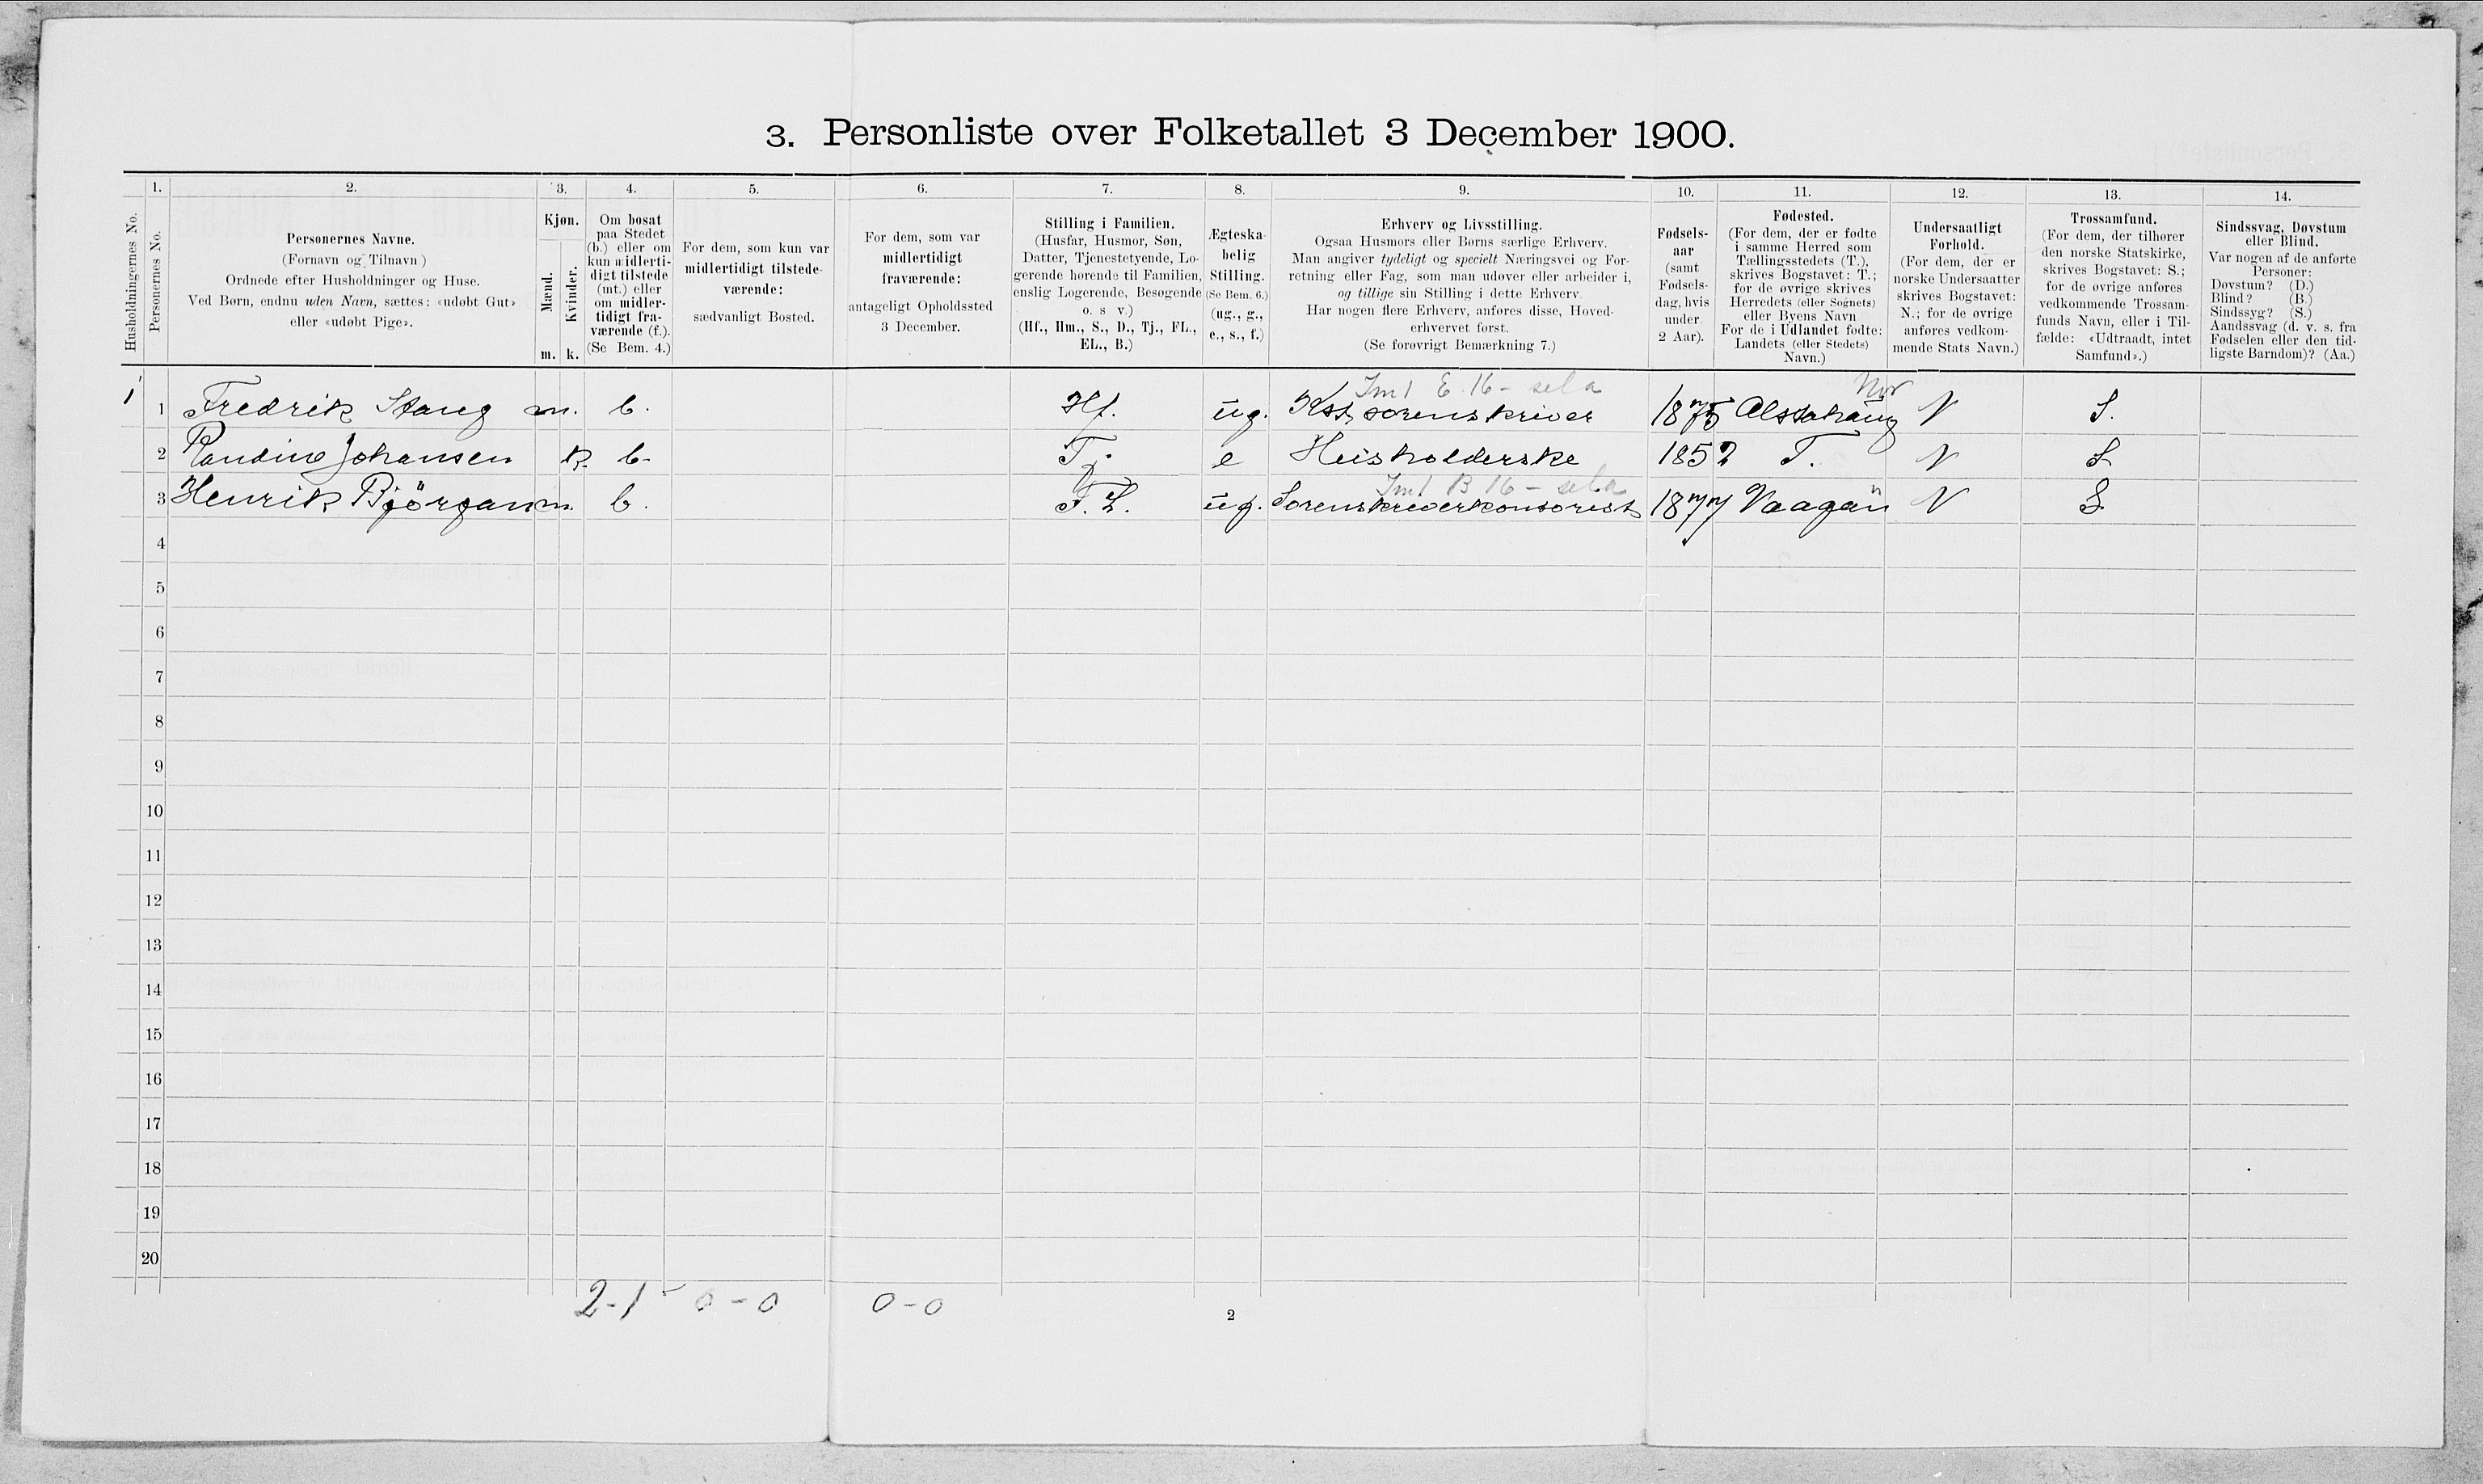 3. Personliste over Folketallet 3 December 1900.
Husholdningernes No.
1.
Personernes No.
2.
Personernes Navne.
(Fornavn og Tilnavn)
Ordnede efter Husholdninger og Huse.
Ved Børn, endnu uden Navn, sættes: «udøbt Gut»
eller «udøbt Pige».
3.
Kjøn.
Mænd.
Kvinder.
m. k.
4.
Om bosat
paa Stedet
(b.) eller om
kun midlerti-
digt tilstede
(mt.) eller
om midler-
tidigt fra-
værende (f.).
(Se Bem. 4.)
5.
For dem, som kun var
midlertidigt tilstede-
værende:
sædvanligt Bosted.
6.
For dem, som var
midlertidigt
fraværende:
antageligt Opholdssted
3 December.
7.
Stilling i Familien.
(Husfar, Husmor, Søn,
Datter, Tjenestetyende, Lo-
gerende hørende til Familien,
enslig Logerende, Besøgende
o. s v.)
(Hf., Hm., S., D., Tj., FL.,
EL., B.)
8.
Ægteska-
belig
Stilling.
(Se Bem. 6.)
(ug., g.,
e., s., f.)
9.
Erhverv og Livsstilling.
Ogsaa Husmors eller Børns særlige Erhverv.
Man angiver tydeligt og specielt Næringsvei og For-
retning eller Fag, som man udøver eller arbeider i,
og tillige sin Stilling i dette Erhverv.
Har nogen flere Erhverv, anføres disse, Hoved-
erhvervet først.
(Se forøvrigt Bemærkning 7.)
10.
Fødsels-
aar
(samt
Fødsels-
dag, hvis
under
2 Aar).
11.
Fødested.
(For dem, der er fødte
i samme Herred som
Tællingsstedets (T.),
skrives Bogstavet: T.;
for de øvrige skrives
Herredets (eller Sognets)
eller Byens Navn
For de i Udlandet fødte:
Landets (eller Stedets)
Navn.)
12.
Undersaatligt
Forhold.
(For dem, der er
norske Undersaatter
skrives Bogstavet:
N.; for de øvrige
anføres vedkom-
mende Stats Navn.)
13.
Trossamfund.
(For dem, der tilhører
den norske Statskirke,
skrives Bogstavet: S.;
for de øvrige anføres
vedkommende Trossam-
funds Navn, eller i Til-
fælde: «Udtraadt, intet
Samfund».)
14.
Sindssvag, Døvstum
eller Blind.
Var nogen af de anførte
Personer:
Døvstum? (D.)
Blind? (B.)
Sindssyg? (S.)
Aandssvag (d. v. s. fra
Fødselen eller den tid-
ligste Barndom)? (Aa.)
1 1 Fredrik Stang m. b. Hf. ug. Kst sorenskriver 1875 Alstahaug N S.
2 Paudine Johansen k. b. Tj e Heisholderske 1852 T. N S
3 Henrik Bjørgan m. b. F.L. ug. Sorenskriverkontorist 1877 Vaagan N S
4
5
6
7
8
9
10
11
12
13
14
15
16
17
18
19
20
2-1 0-0 0-0
2